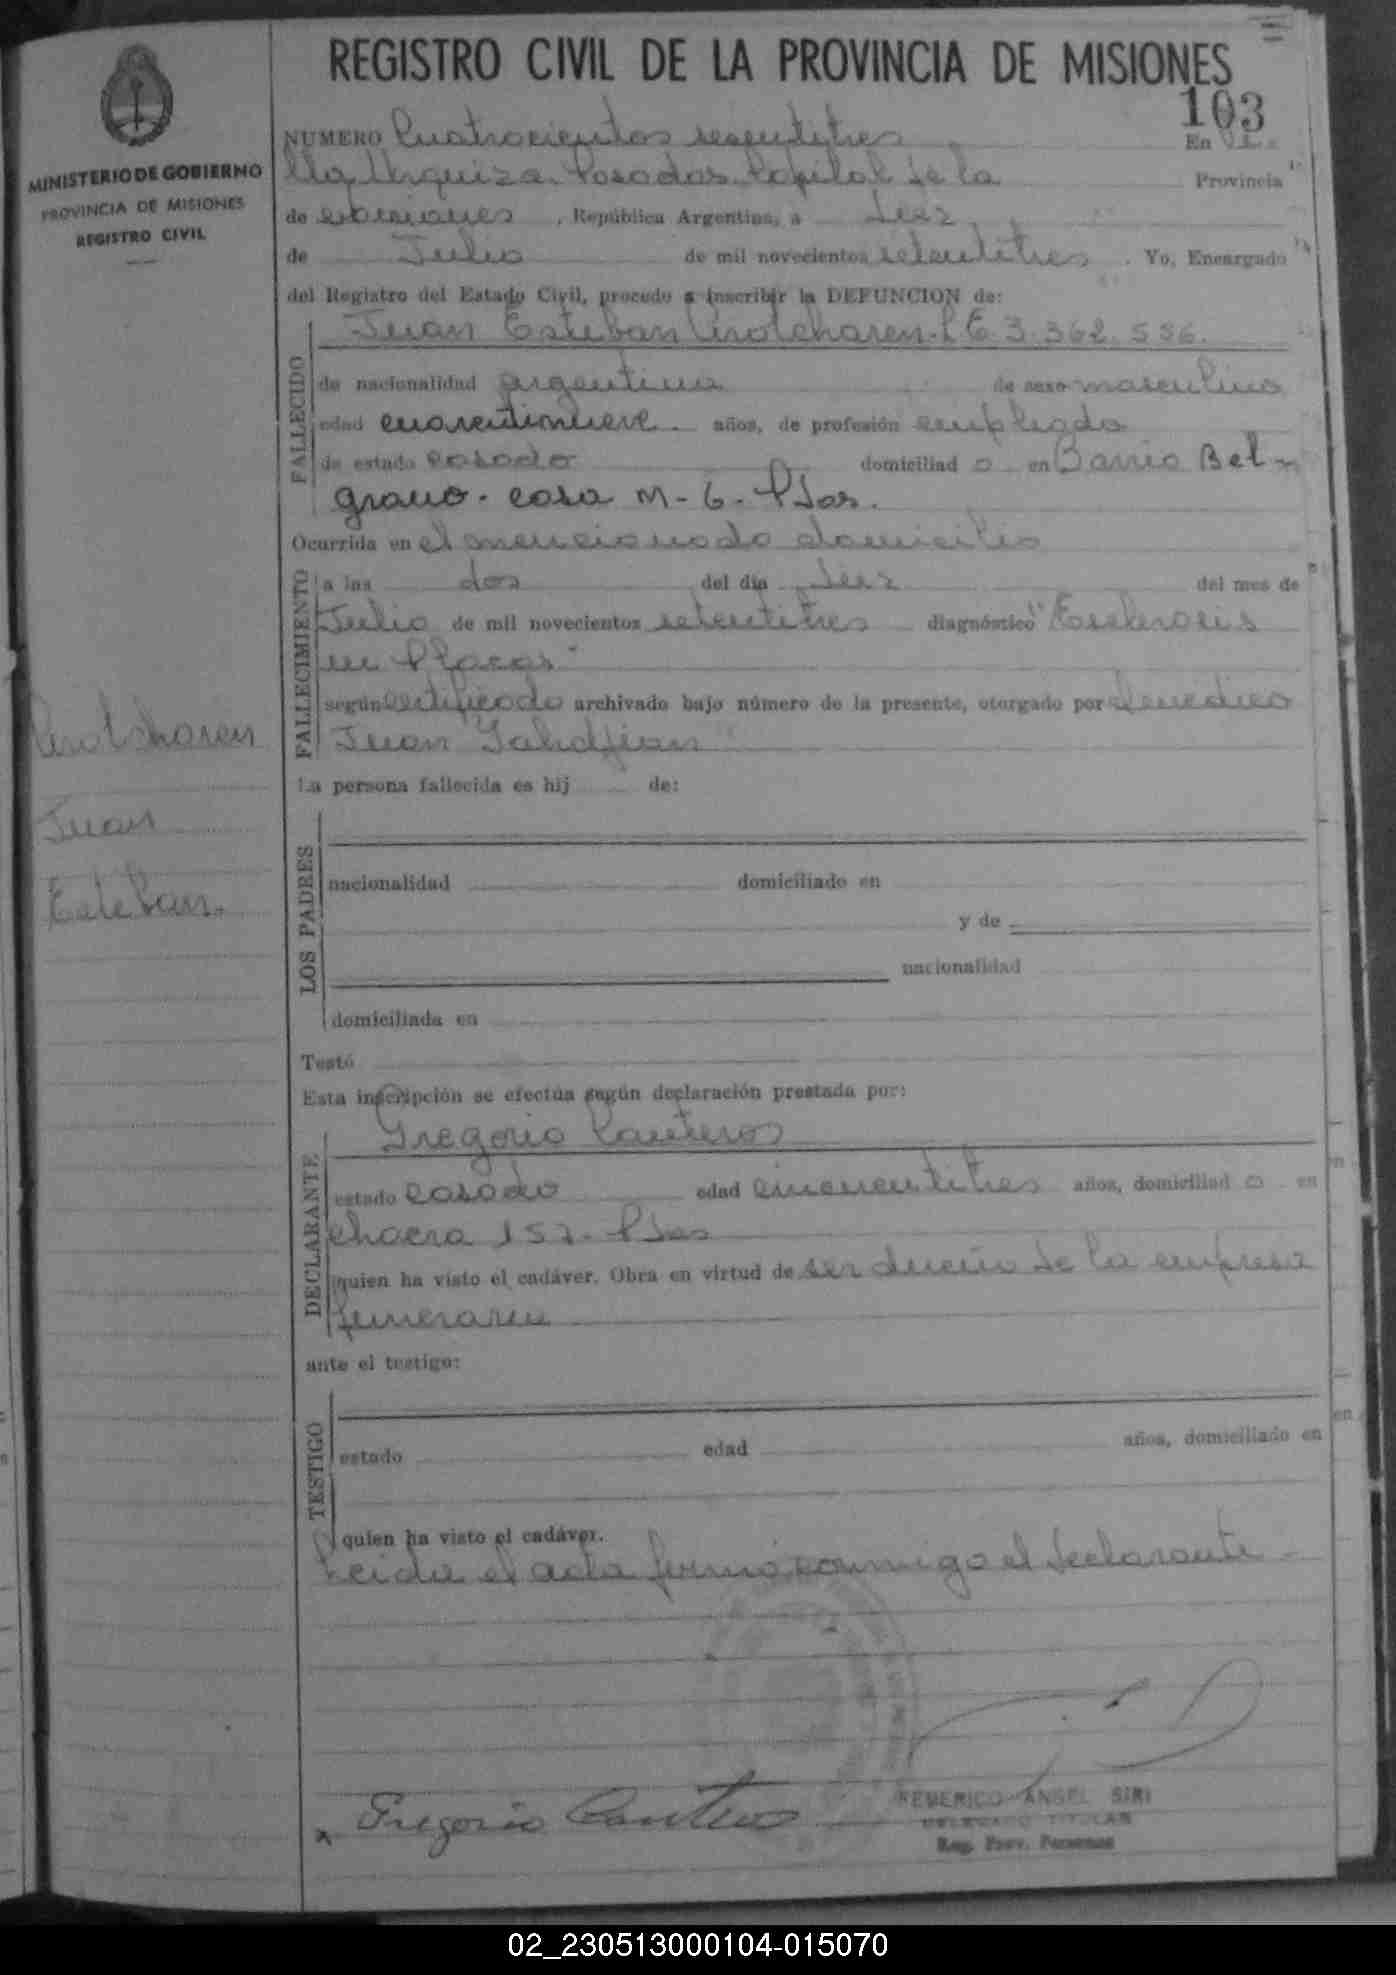 REGISTRO CIVIL DE LA PROVINCIA DE MISIONES
103
MINISTERIO DE GOBIERNO
PROVINCIA DE MISIONES
REGISTRO CIVIL
NUMERO Cuatrocientos sesentitres En Vi-
lla Urquiza. Posadas. Capital de la Provincia
de Misiones, República Argentina, a seis
de Julio de mil novecientos setentitres. Yo, Encargado
del Registro del Estado Civil, procedo a inscribir la DEFUNCION de:
FALLECIDO
Juan Esteban L.E. 3.362.556.
de nacionalidad argentina de sexo masculino
edad cuarentinueve años, de profesión empleado
de estado casado domiciliado en Barrio Bel-
grano. casa M-6- Pdas.
Ocurrida en el mencionado domicilio
FALLECIMIENTO
a las dos del día seis del mes de
Julio de mil novecientos setentitres diagnóstico "Esclerosis
en Placas"
según certificado archivado bajo número de la presente, otorgado por el medico
Juan
Juan
Esteban.
La persona fallecida es hij de:
LOS PADRES
nacionalidad domiciliado en
y de
nacionalidad
domiciliada en
Testó
Esta inscripción se efectúa según declaración prestada por:
DECLARANTE
Gregorio Canteros
estado casado edad cincuentitres años, domiciliado en
chacra 157- Pdas
quien ha visto el cadáver. Obra en virtud de ser dueño de la empresa
funeraria
ante el testigo:
TESTIGO
estado edad años, domiciliado en
quien ha visto el cadáver.
Leida el acta firmó conmigo el declarante-
Gregorio Canteros
FEDERICO ANGEL SIRI
DELEGADO TITULAR
Reg. Prov. Personas
02_230513000104-015070